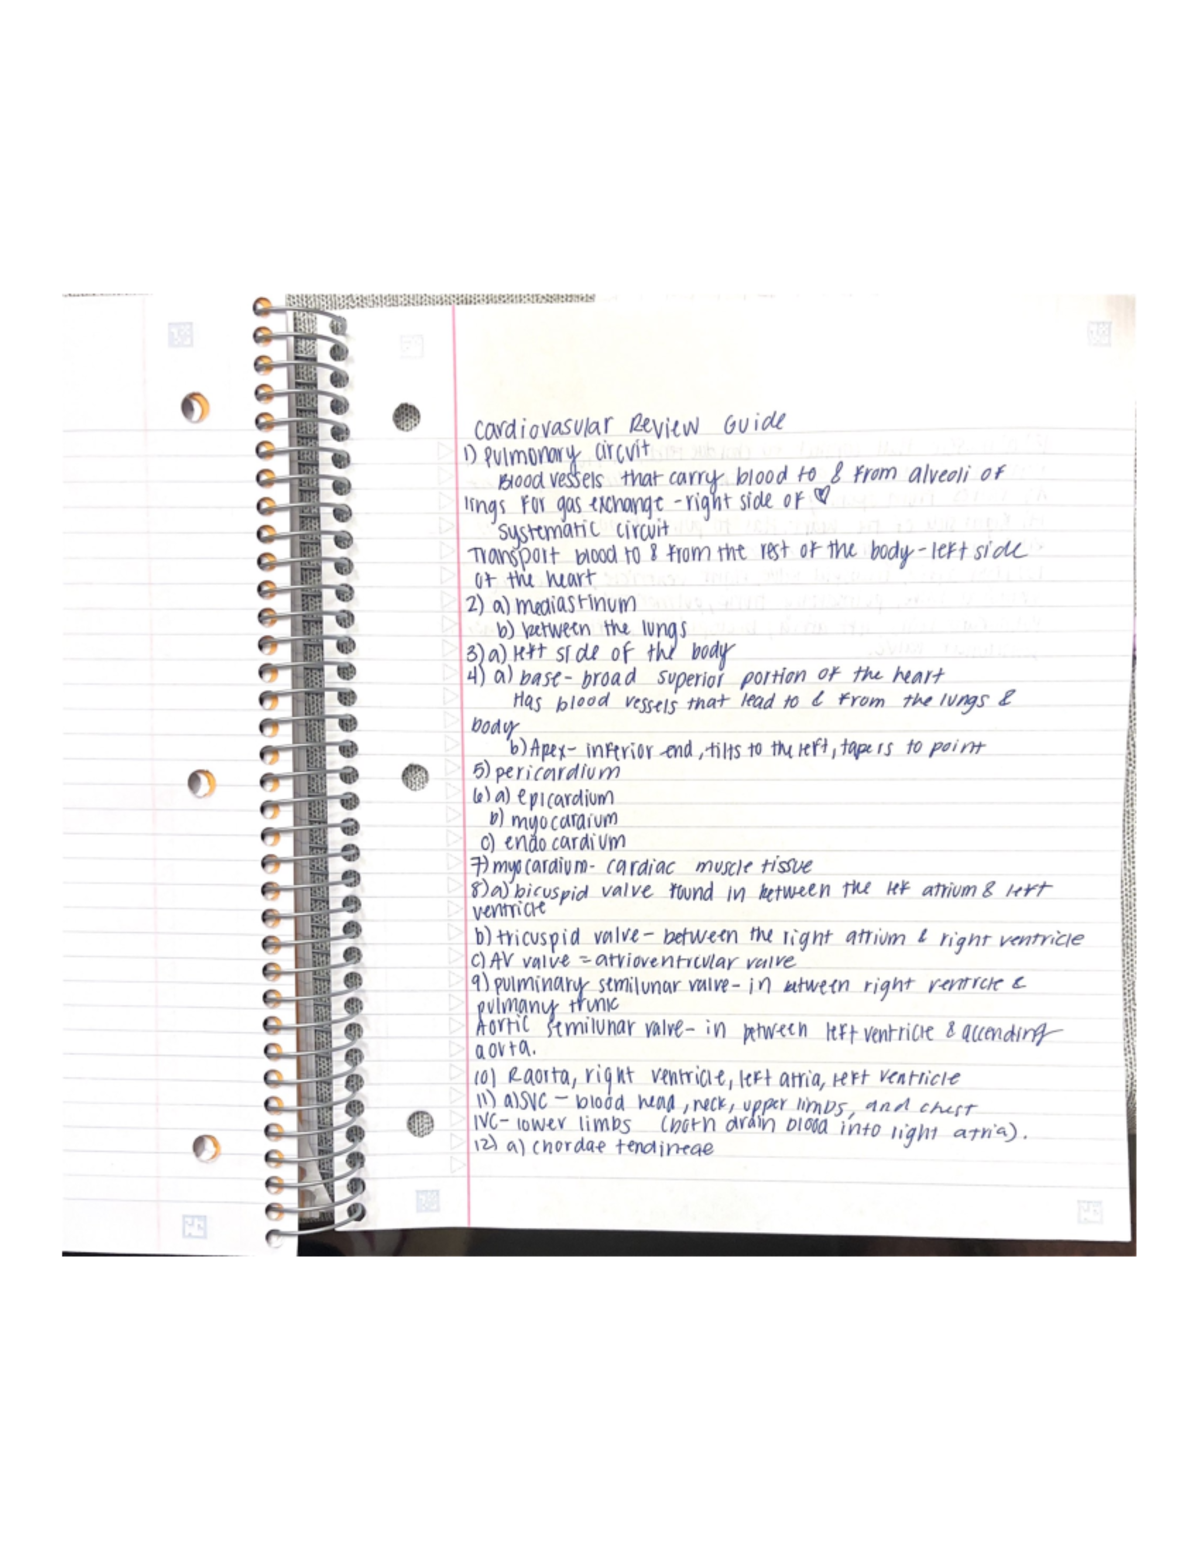 Cardiovasular Review Guide
1) Pulmonary circuit
Blood vessels that carry blood to & from alveoli of
lings for gas exchange - right side of ♡
Systematic circuit
Transport blood to & from the rest of the body - left side
of the heart
2) a) mediastinum
b) between the lungs
3) a) left side of the body
4) a) base - broad superior portion of the heart
Has blood vessels that lead to & from the lungs &
body
b) Apex - inferior end, tilts to the left, tapers to point
5) pericardium
6) a) epicardium
b) myocardium
c) endocardium
7) myocardium - cardiac muscle tissue
8) a) bicuspid valve found in between the left atrium & left
ventricle
b) tricuspid valve - between the right atrium & right ventricle
c) AV valve = atrioventricular valve
9) pulminary semilunar valve - in between right ventricle &
pulmany trunk
Aortic semilunar valve - in between left ventricle & accending
aorta.
10) Raorta, right ventricle, left atria, left ventricle
11) a) SVC - blood head, neck, upper limbs, and chest
IVC - lower limbs (both drain blood into right atria).
12) a) chordae tendineae